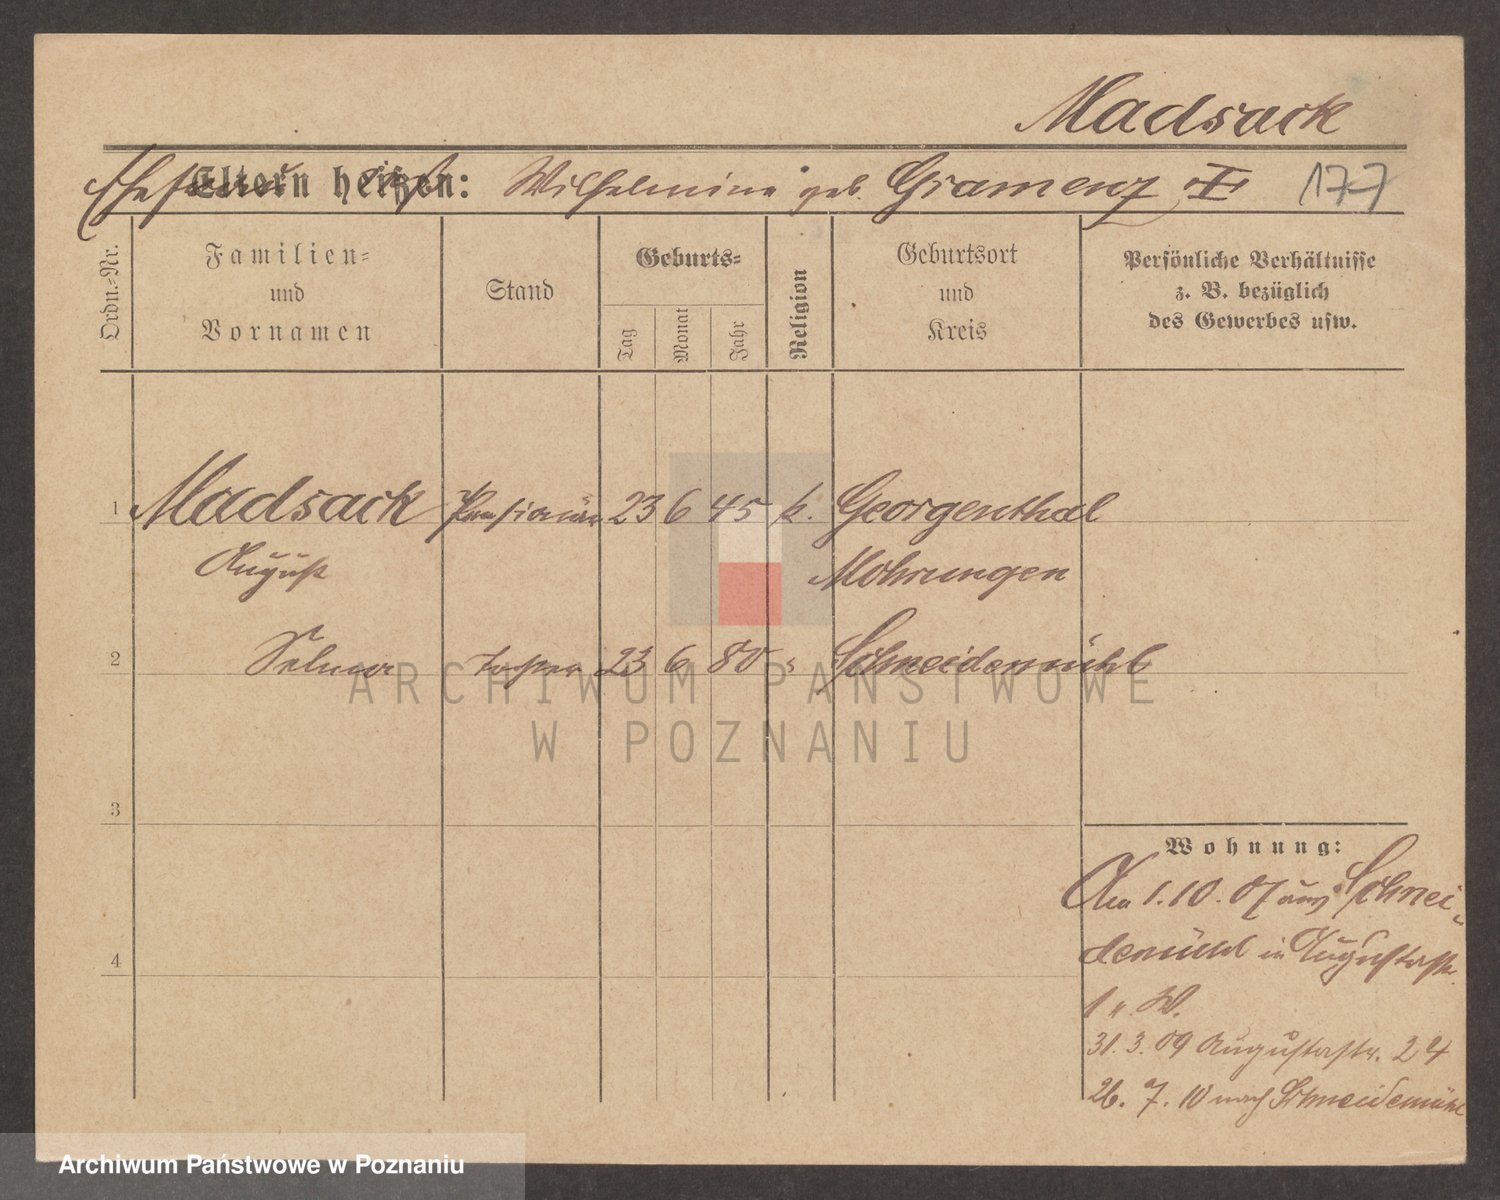 Madsack
Ehefrau hieß
Eltern heißen: Wilhelmine geb. Gramenz 177
Ordn.-Nr.
Familien-
und
Vornamen
Stand
Geburts-
Tag
Monat
Jahr
Religion
Geburtsort
und
Kreis
Persönliche Verhältnisse
z. B. bezüglich
des Gewerbes usw.
1 Madsack Pensionär 23 6 45 k. Georgenthal
August Mohrungen
2 Selma Tochter 23 6 80 Schneidemühl
ARCHIWUM PAŃSTWOWE
W POZNANIU
3
Wohnung:
Am 1.10.07 aus Schnei-
demühl in Augustastr.
4
1 W.
31.3.09 Augustastr. 24
26.7.10 nach Schneidemühl
Archiwum Państwowe w Poznaniu